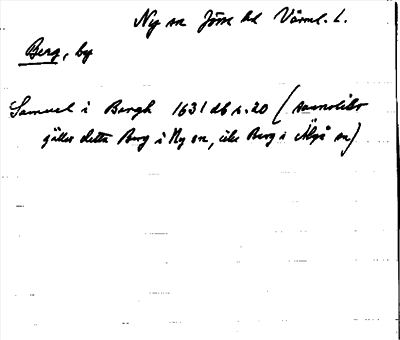 Ny sn Jösse hd Värml. l.
Berg, by
Samuel i Bergh 1631 db s. 20 (sannolikt
gäller detta Berg i Ny sn, icke Berg i Älgå sn)